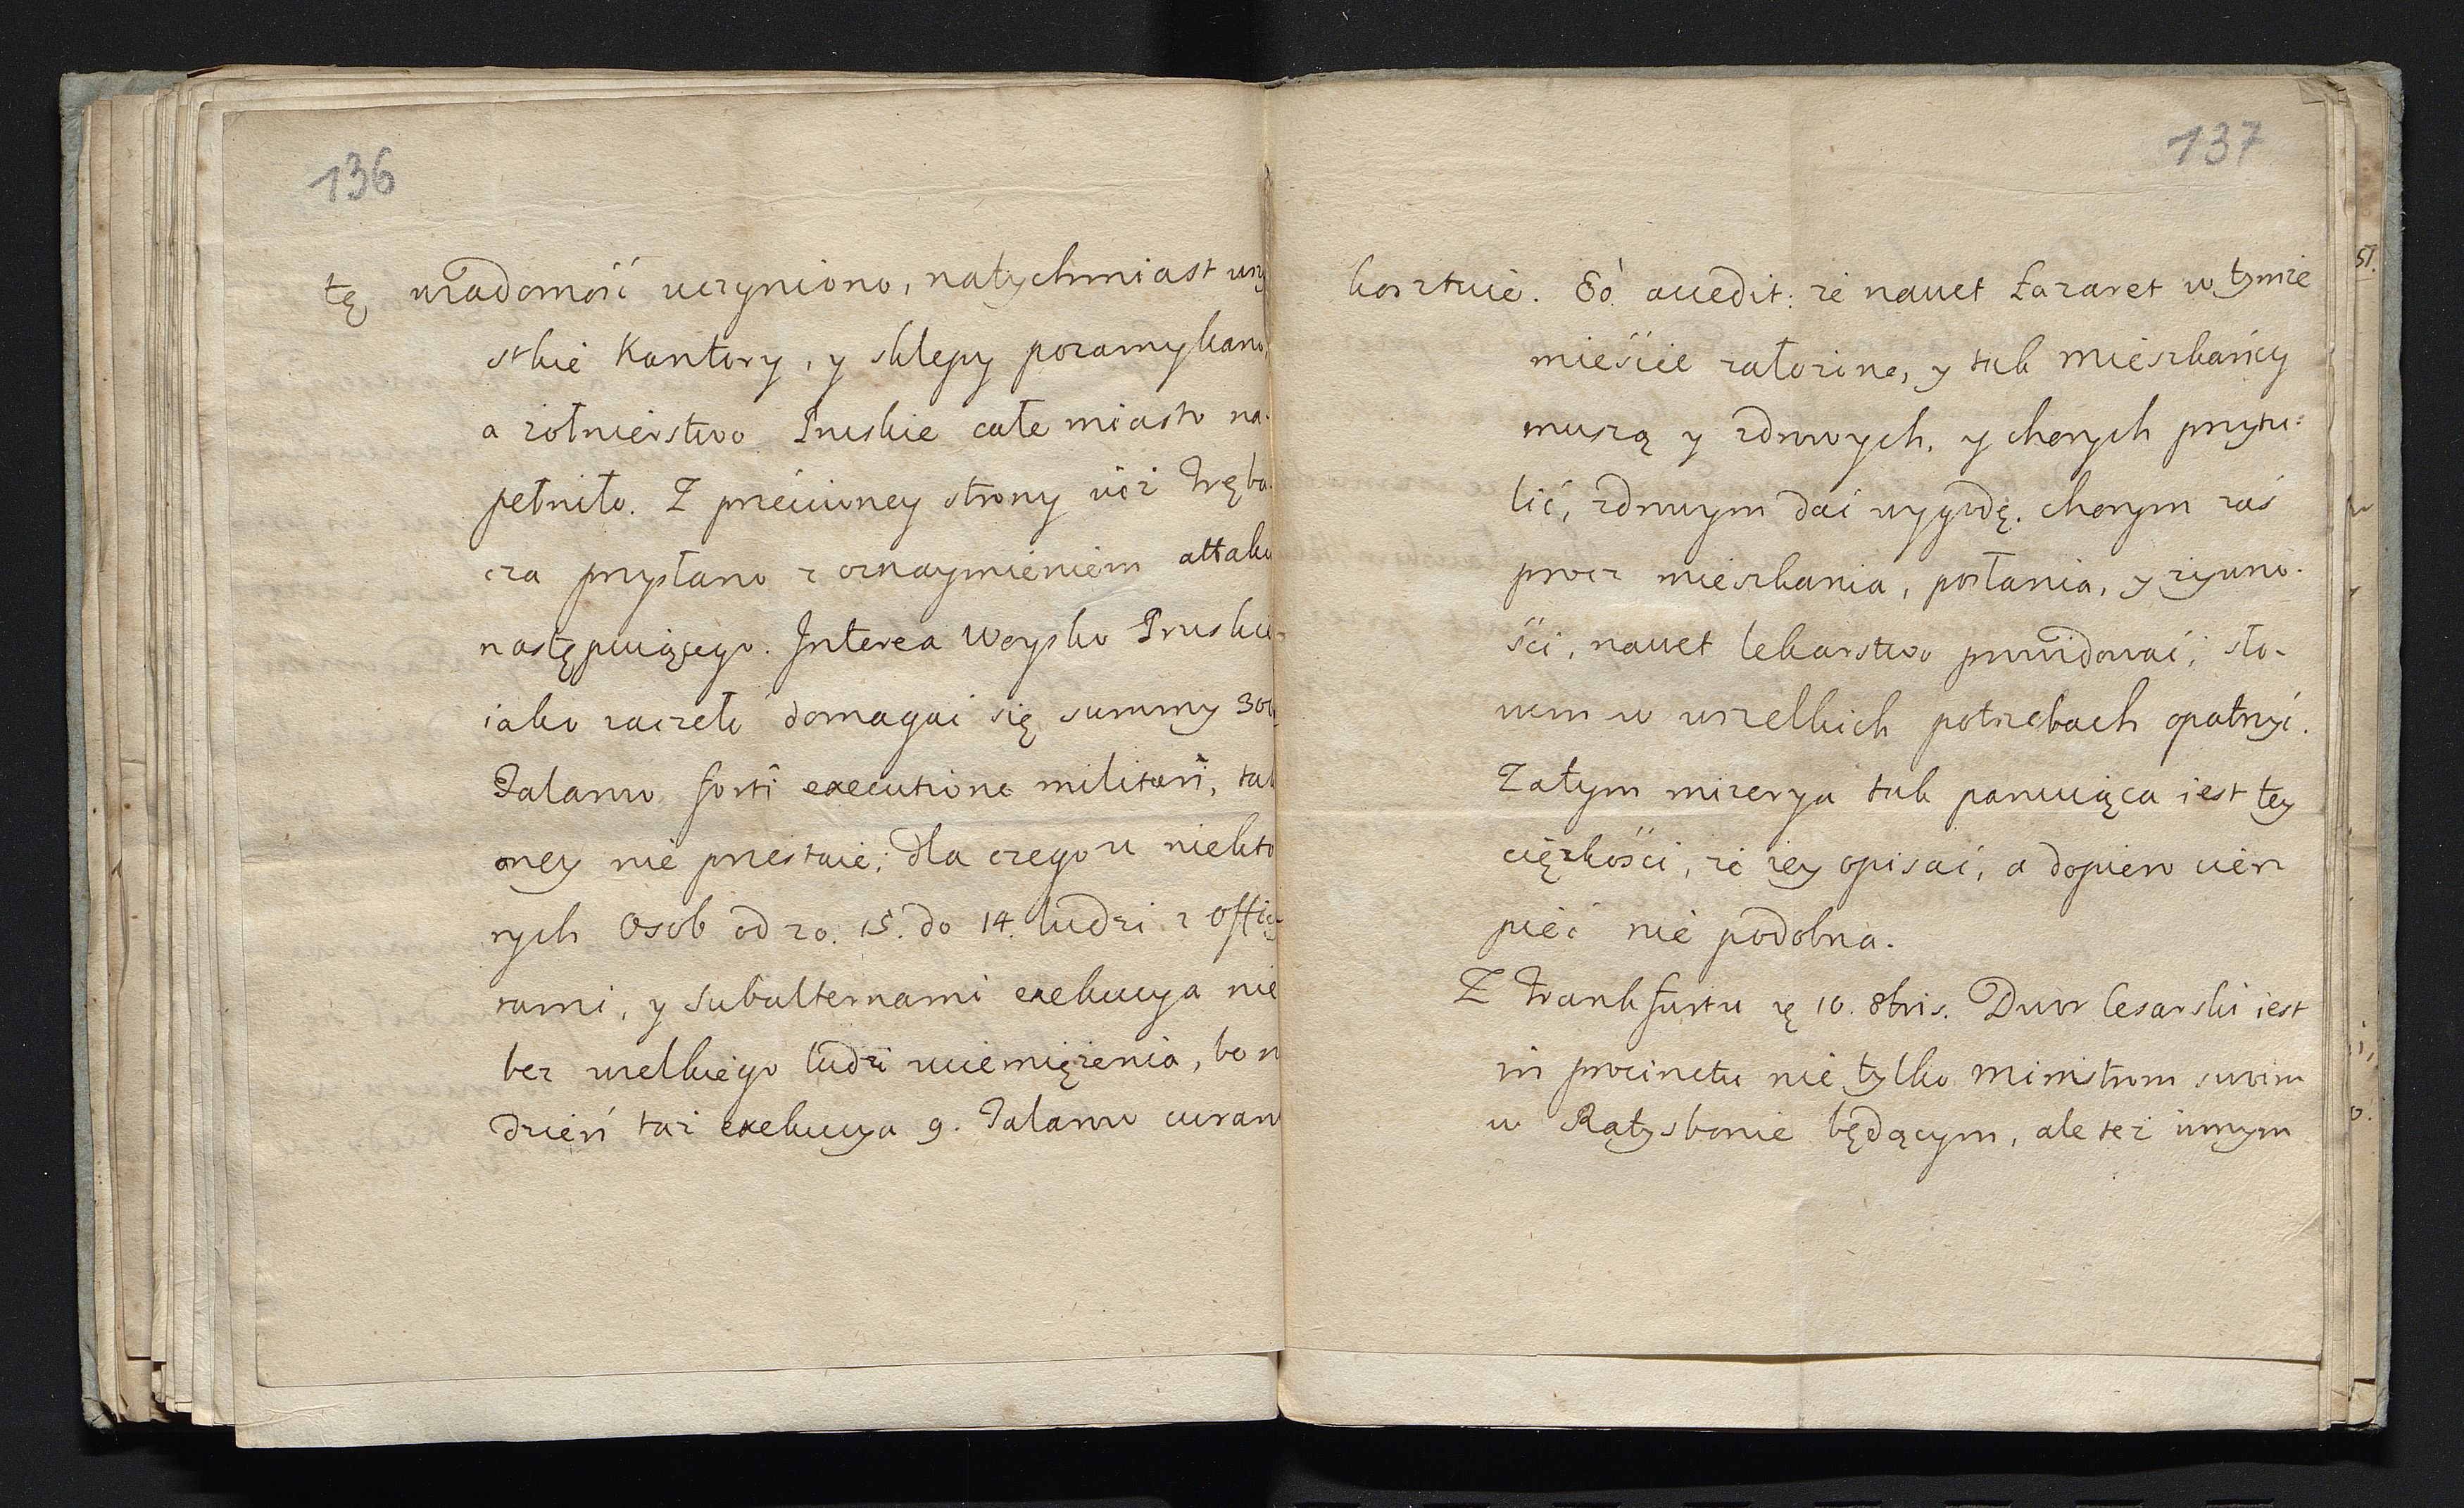 136
tę wiadomość uczyniono, natychmiast wszy
stkie Kantory, y sklepy pozamykano,
a żołnierstwo Pruskie całe miasto na-
pełniło. Z przeciwney strony też Tręba-
cza przysłano z oznaymieniem attaku
następuiącego. Interea Woysko Pruskie
iako zaczeło domagać się summy 300
Talarow forti executione militari, tak
oney nie przestaie; dla czego u niekto
rych Osob od 20. 15. do 14. ludzi z Offic
rami, y Subalternami exekucya nie
bez wielkiego ludzi uciemiężenia, bo n
dzień taż exekucya 9. Talarow
137
kosztuie. Eò accedit: że nawet Łazaret w tymże
mieście założono, y tak Mieszkańcy
muszą y zdrowych, y chorych przytu-
lić, zdrowym dać wygodę. chorym zaś
procz mieszkania, posłania, y żywno-
ści, nawet lekarstwo prowidować, sło-
wem w wszelkich potrzebach opatrzyć.
Zatym mizerya tak panuiąca iest tey
ciężkości, że iey opisać, a dopiero cier
pieć nie podobna.
Z Frankfurtu 10. 8bris. Dwor Cesarski iest
in procinctu nie tylko Ministrom swoim
w Ratysbonie będącym, ale też innym